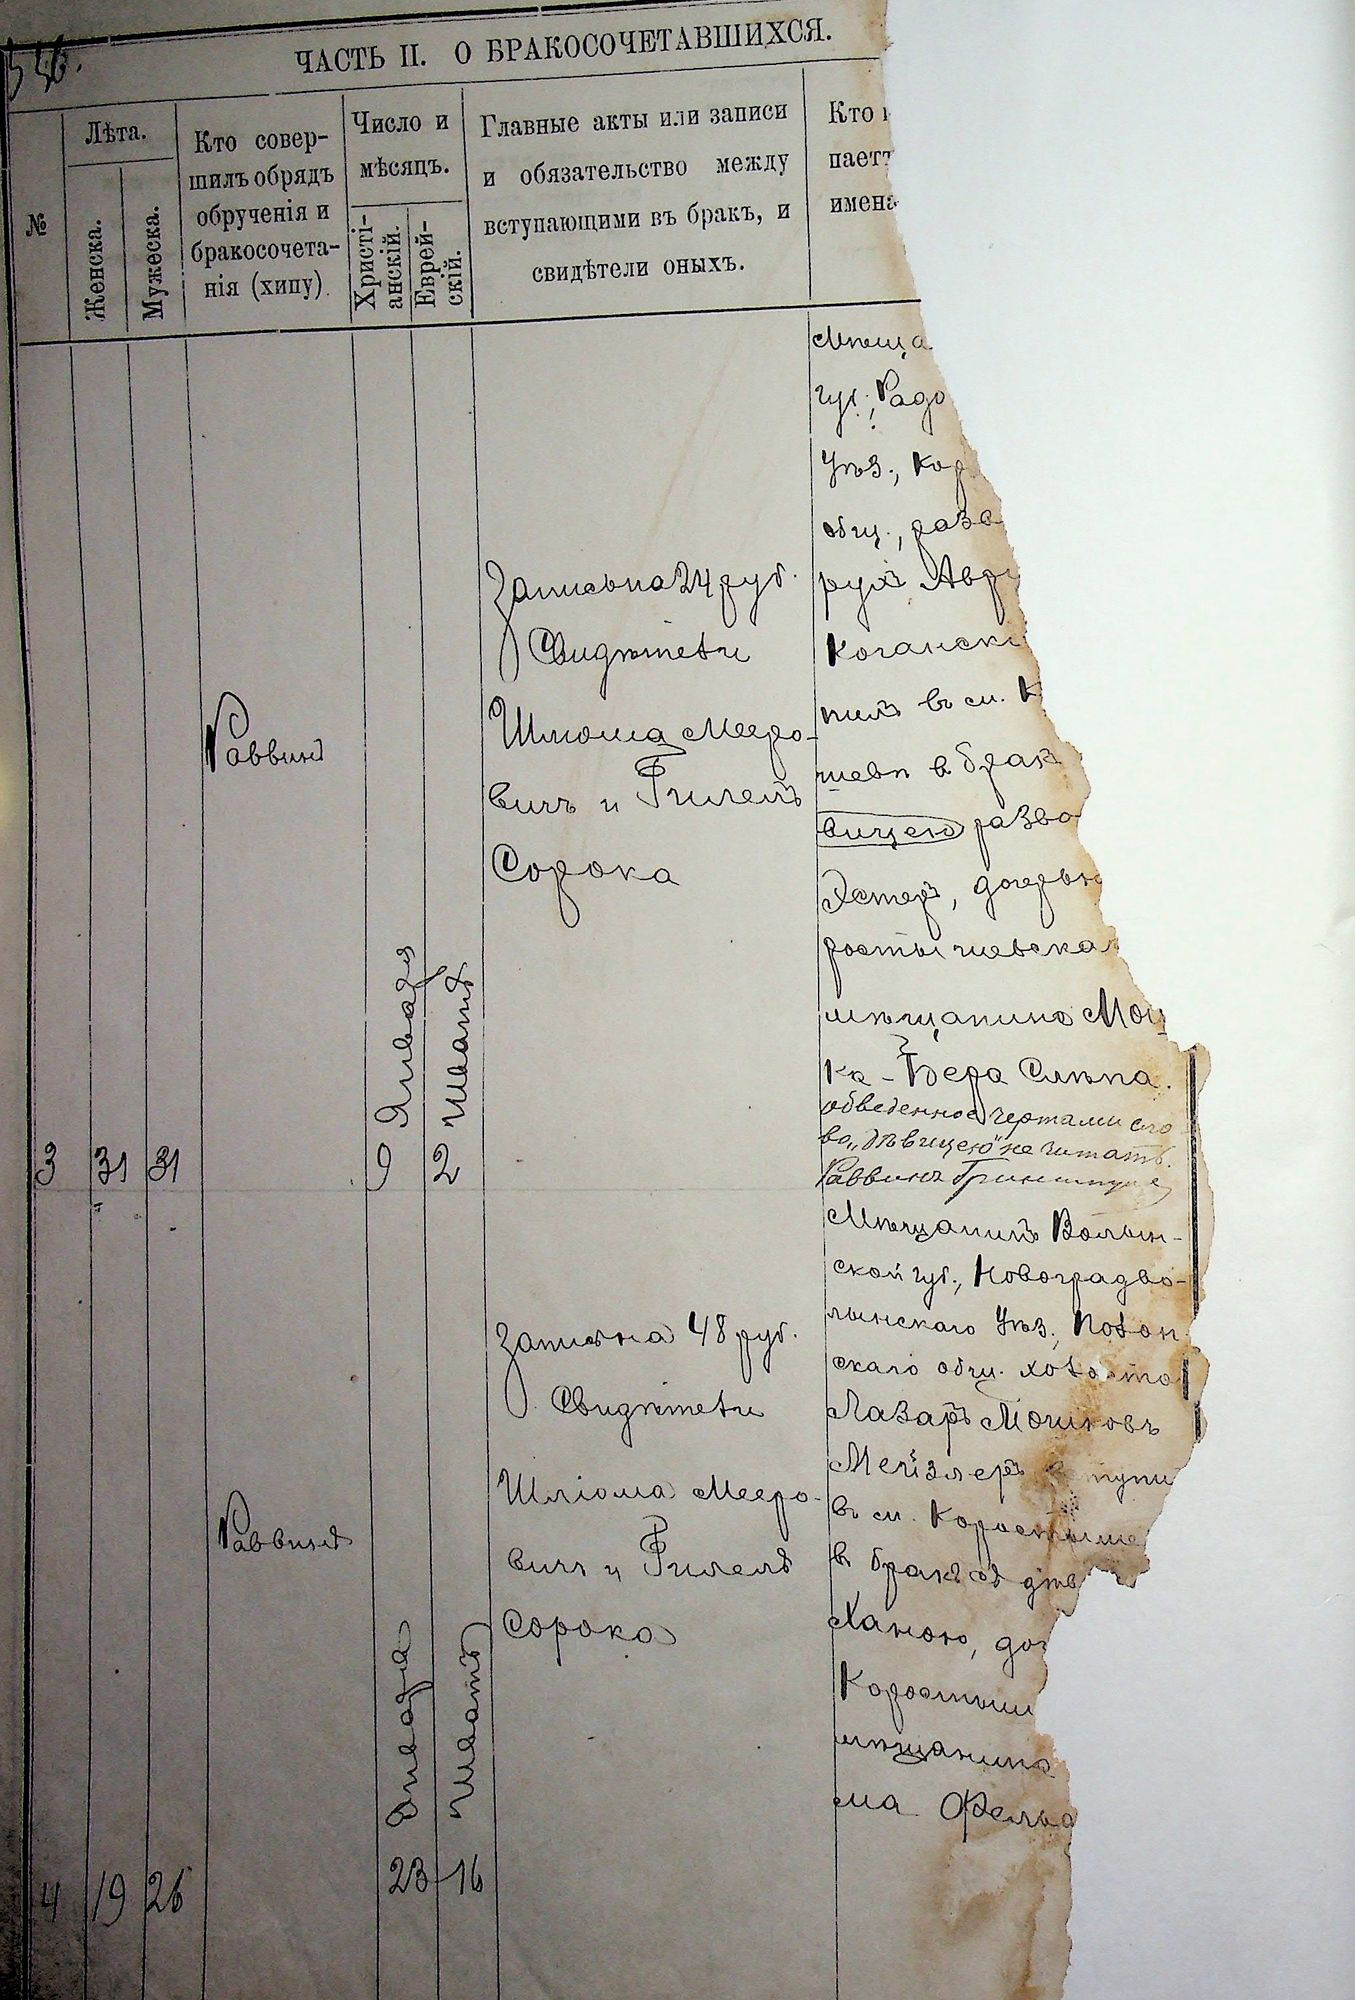 ЧАСТЬ II. О БРАКОСОЧЕТАВШИХСЯ.
№
Лѣта.
Женска.
Мужеска.
Кто совер-
шилъ обрядъ
обрученія и
бракосочета-
нія (хипу)
Число и
мѣсяцъ.
Христі-
анскій.
Еврей-
скій.
Главные акты или записи
и обязательство между
вступающими въ бракъ, и
свидѣтели оныхъ.
Кто
пает
имен
3
31
31
Раввинъ
9 Января
2 Шватъ
Записьна 24 руб.
Свидѣтели
Шлиома Мееро-
вичъ и Гилелъ
Сорока
Мѣща
губ., Радо
Уѣз., Кор
общ., разв
рухъ Авр
Когански
пилъ въ м. К
шевѣ въ брак
вицею разво
Эстер, дочерью
ростышевска
мѣщанина Мош
ка-Бера Слѣпа.
обведенное чертами сло
во „дѣвицею" не читать.
Раввинъ Гриншпун
4
19
26
Раввинъ
23 Января
16 Шватъ
Записьна 48 руб.
Свидѣтели
Шліома Мееро-
вичъ и Гилелъ
Сорока
Мѣщанинъ Волын-
ской губ., Новоградво-
лынскаго Уѣз., Полон
скаго общ. холосто
Лазаръ Мошковъ
Мейзлеръ вступи
въ м. Коростыше
въ бракъ съ дѣв
Ханою, доч
Коростыш
мѣщанина
ма Фельд